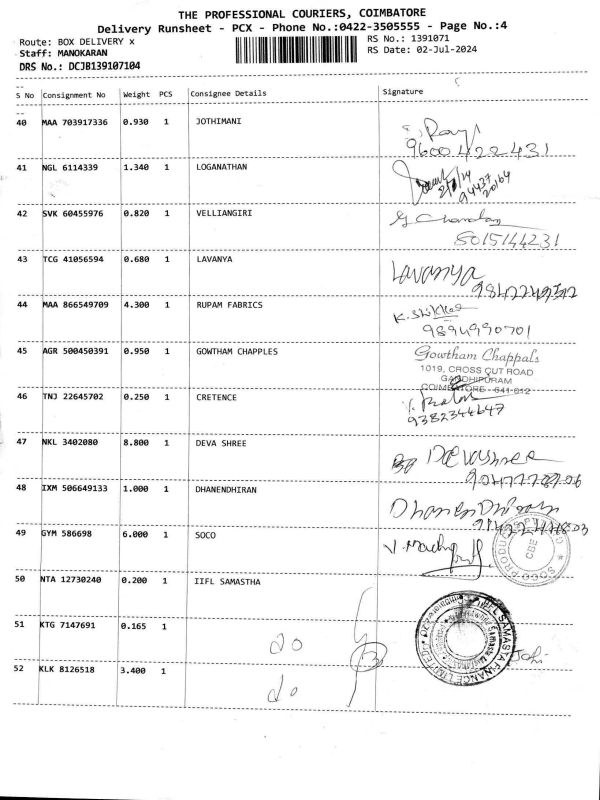 THE PROFESSIONAL COURIERS, COIMBATORE
Delivery Runsheet - PCX - Phone No.:0422-3505555 - Page No.:4
Route: BOX DELIVERY x RS No.: 1391071
Staff: MANOKARAN RS Date: 02-Jul-2024
DRS No.: DCJB139107104
S No Consignment No Weight PCS Consignee Details Signature
40 MAA 703917336 0.930 1 JOTHIMANI
9600422431
41 NGL 6114339 1.340 1 LOGANATHAN
94437
20164
42 SVK 60455976 0.820 1 VELLIANGIRI
8015144231
43 TCG 41056594 0.680 1 LAVANYA Lavanya
44 MAA 866549709 4.300 1 RUPAM FABRICS
9894990701
45 AGR 500450391 0.950 1 GOWTHAM CHAPPLES Gowtham Chappals
1019, CROSS CUT ROAD
GANDHIPURAM
COIMBATORE - 641 012
46 TNJ 22645702 0.250 1 CRETENCE
9382344647
47 NKL 3402080 8.800 1 DEVA SHREE Devashree
48 IXM 506649133 1.000 1 DHANENDHIRAN
49 GYM 586698 6.000 1 SOCO
CBE
50 NTA 12730240 0.200 1 IIFL SAMASTHA
IIFL SAMASTA FINANCE LIMITED
51 KTG 7147691 0.165 1 do
3
52 KLK 8126518 3.400 1 do